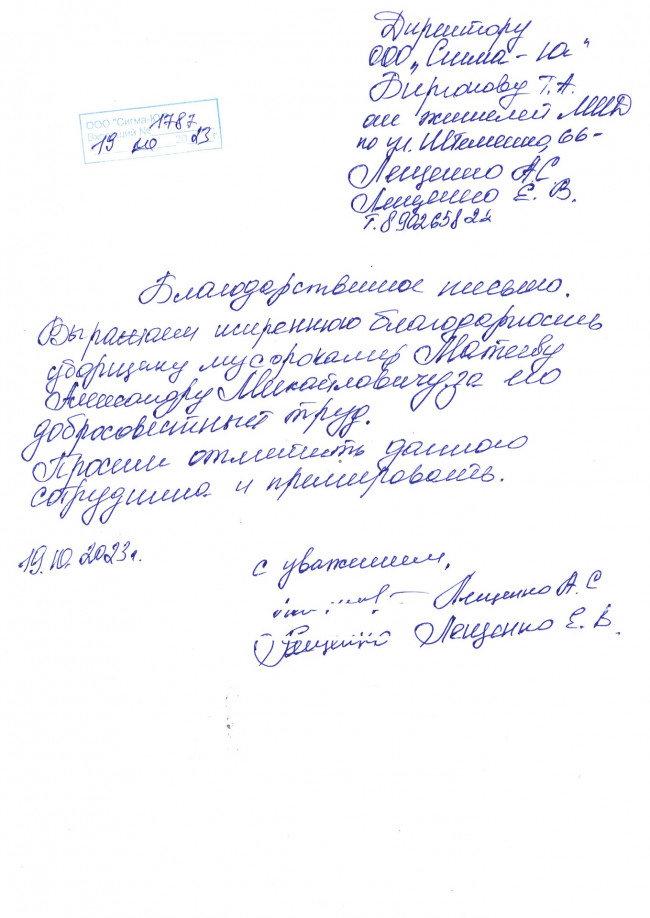 Директору
ООО "Сигма-Юг"
Бирюкову Т.А.
от жителей МКД
по ул. Штеменко, 66-
Лещенко А.С.
Лещенко Е. В.
т. 890265822
ООО "Сигма-Ю
Входящий № 1787
19 10 2023 г.
Благодарственное письмо.
Выражаем искреннюю благодарность
уборщику мусорокамер Матееву
Александру Михайловичу за его
добросовестный труд.
Просим отметить данного
сотрудника и премировать.
19.10.2023г.
с уважением,
Лещенко А.С
Лещенко Е. В.